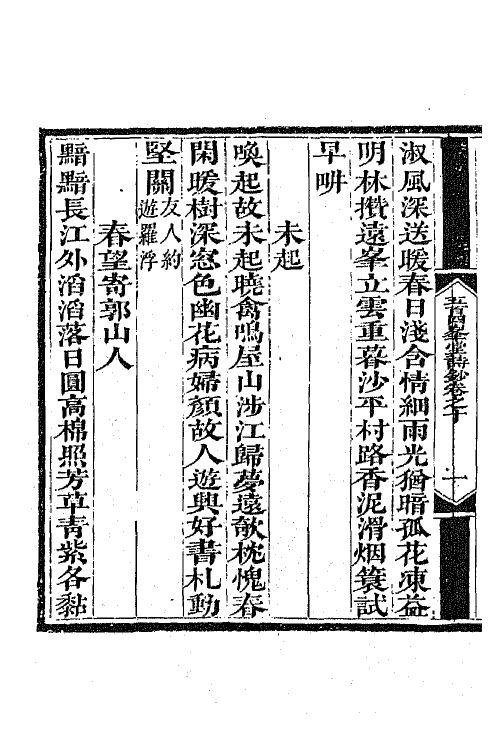 淑風深送暖春日淺含情細雨光猶暗孤花凍益
明林攢遠峯立雲重暮沙平村路香泥滑烟簑試
早畊
未起
喚起故未起曉禽鳴屋山涉江歸夢遠欹枕愧春
閑暖樹深窓色幽花病婦顏故人遊興好書札動
堅關友人約遊羅浮
春望寄郭山人
黯黯長江外滔滔落日圓高棉照芳草青紫各黏
卷之下 一